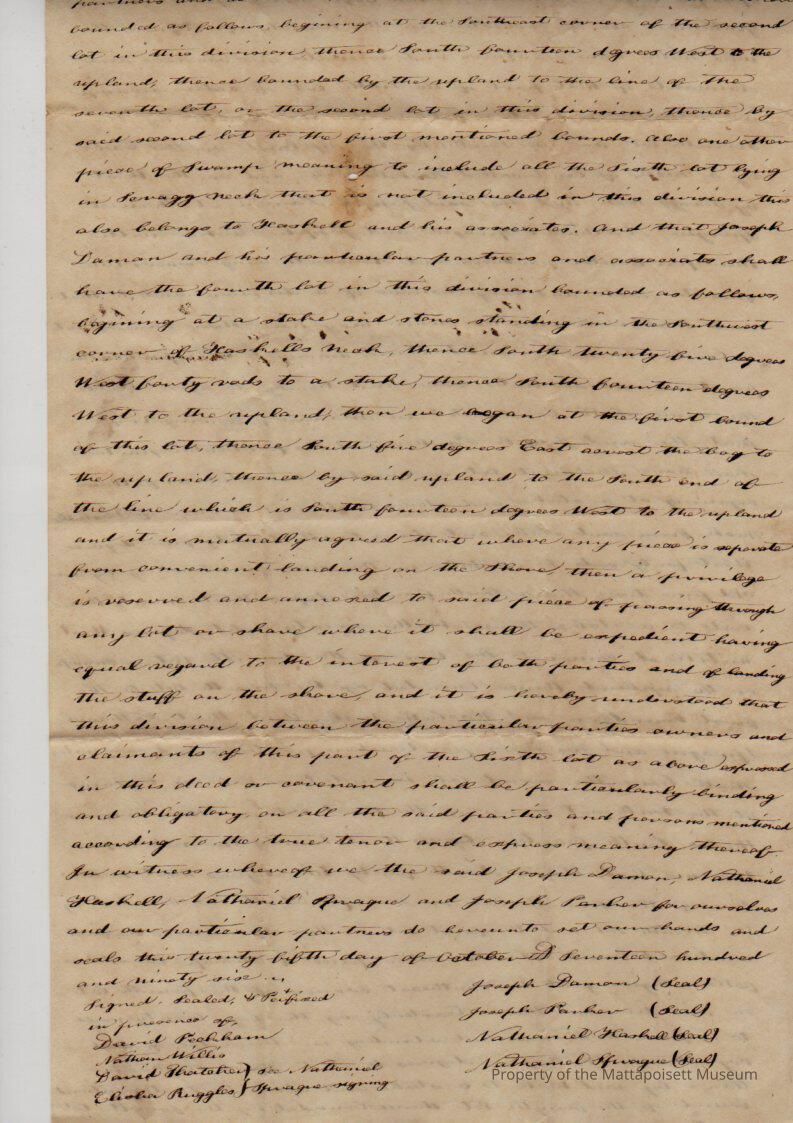 bounded as follows, begining at the Southeast corner of the second
lot in this division, thence South fourteen degrees West to the
upland, thence bounded by the upland to the line of the
seventh lot, or the second lot in this division, thence by
said second lot to the first mentioned bounds. Also one other
piece of Swamp meaning to include all the Sixth lot lying
in Neck that is not included in this division this
also belongs to Haskell and his associates. And that Joseph
Damon and his particular partners and associats shall
have the fourth lot in this division bounded as follows,
begining at a stake and stones standing in the Southwest
corner of Haskells Neck, thence South twenty five degrees
West forty rods to a stake, thence South fourteen degrees
West to the upland, then we began at the first bound
of this lot, thence South five degrees East acrost the bog to
the upland, thence by said upland to the South end of
the line which is South fourteen degrees West to the upland
and it is mutually agreed that where any piece is seperate
from convenient landing on the Shore, then a privilege
is reserved and annexed to said piece of passing through
any lot or share where it shall be expedient having
equal regard to the interest of both parties and of landing
the stuff on the shore, and it is hereby understood that
this division between the particular parties owners and
claimants of this part of the Sixth lot as above expressed
in this deed or covenant shall be particularly binding
and obligatory on all the said parties and persons mentioned
according to the true tenor and express meaning thereof.
In witness whereof we the said Joseph Damon, Nathaniel
Haskell, Nathaniel Sprague and Joseph Parker for ourselves
and our particular partners do hereunto set our hands and
seals this twenty fifth day of October AD Seventeen hundred
and ninety six
Signed, Sealed, &
in presence of,
David Peckham
Nathan Willis
David Thatcher } see Nathaniel
Elisha Ruggles } Sprague signing
Joseph Damon (Seal)
Joseph Parker (Seal)
Nathaniel Haskell (Seal)
Nathaniel Sprague (Seal)
Property of the Mattapoisett Museum